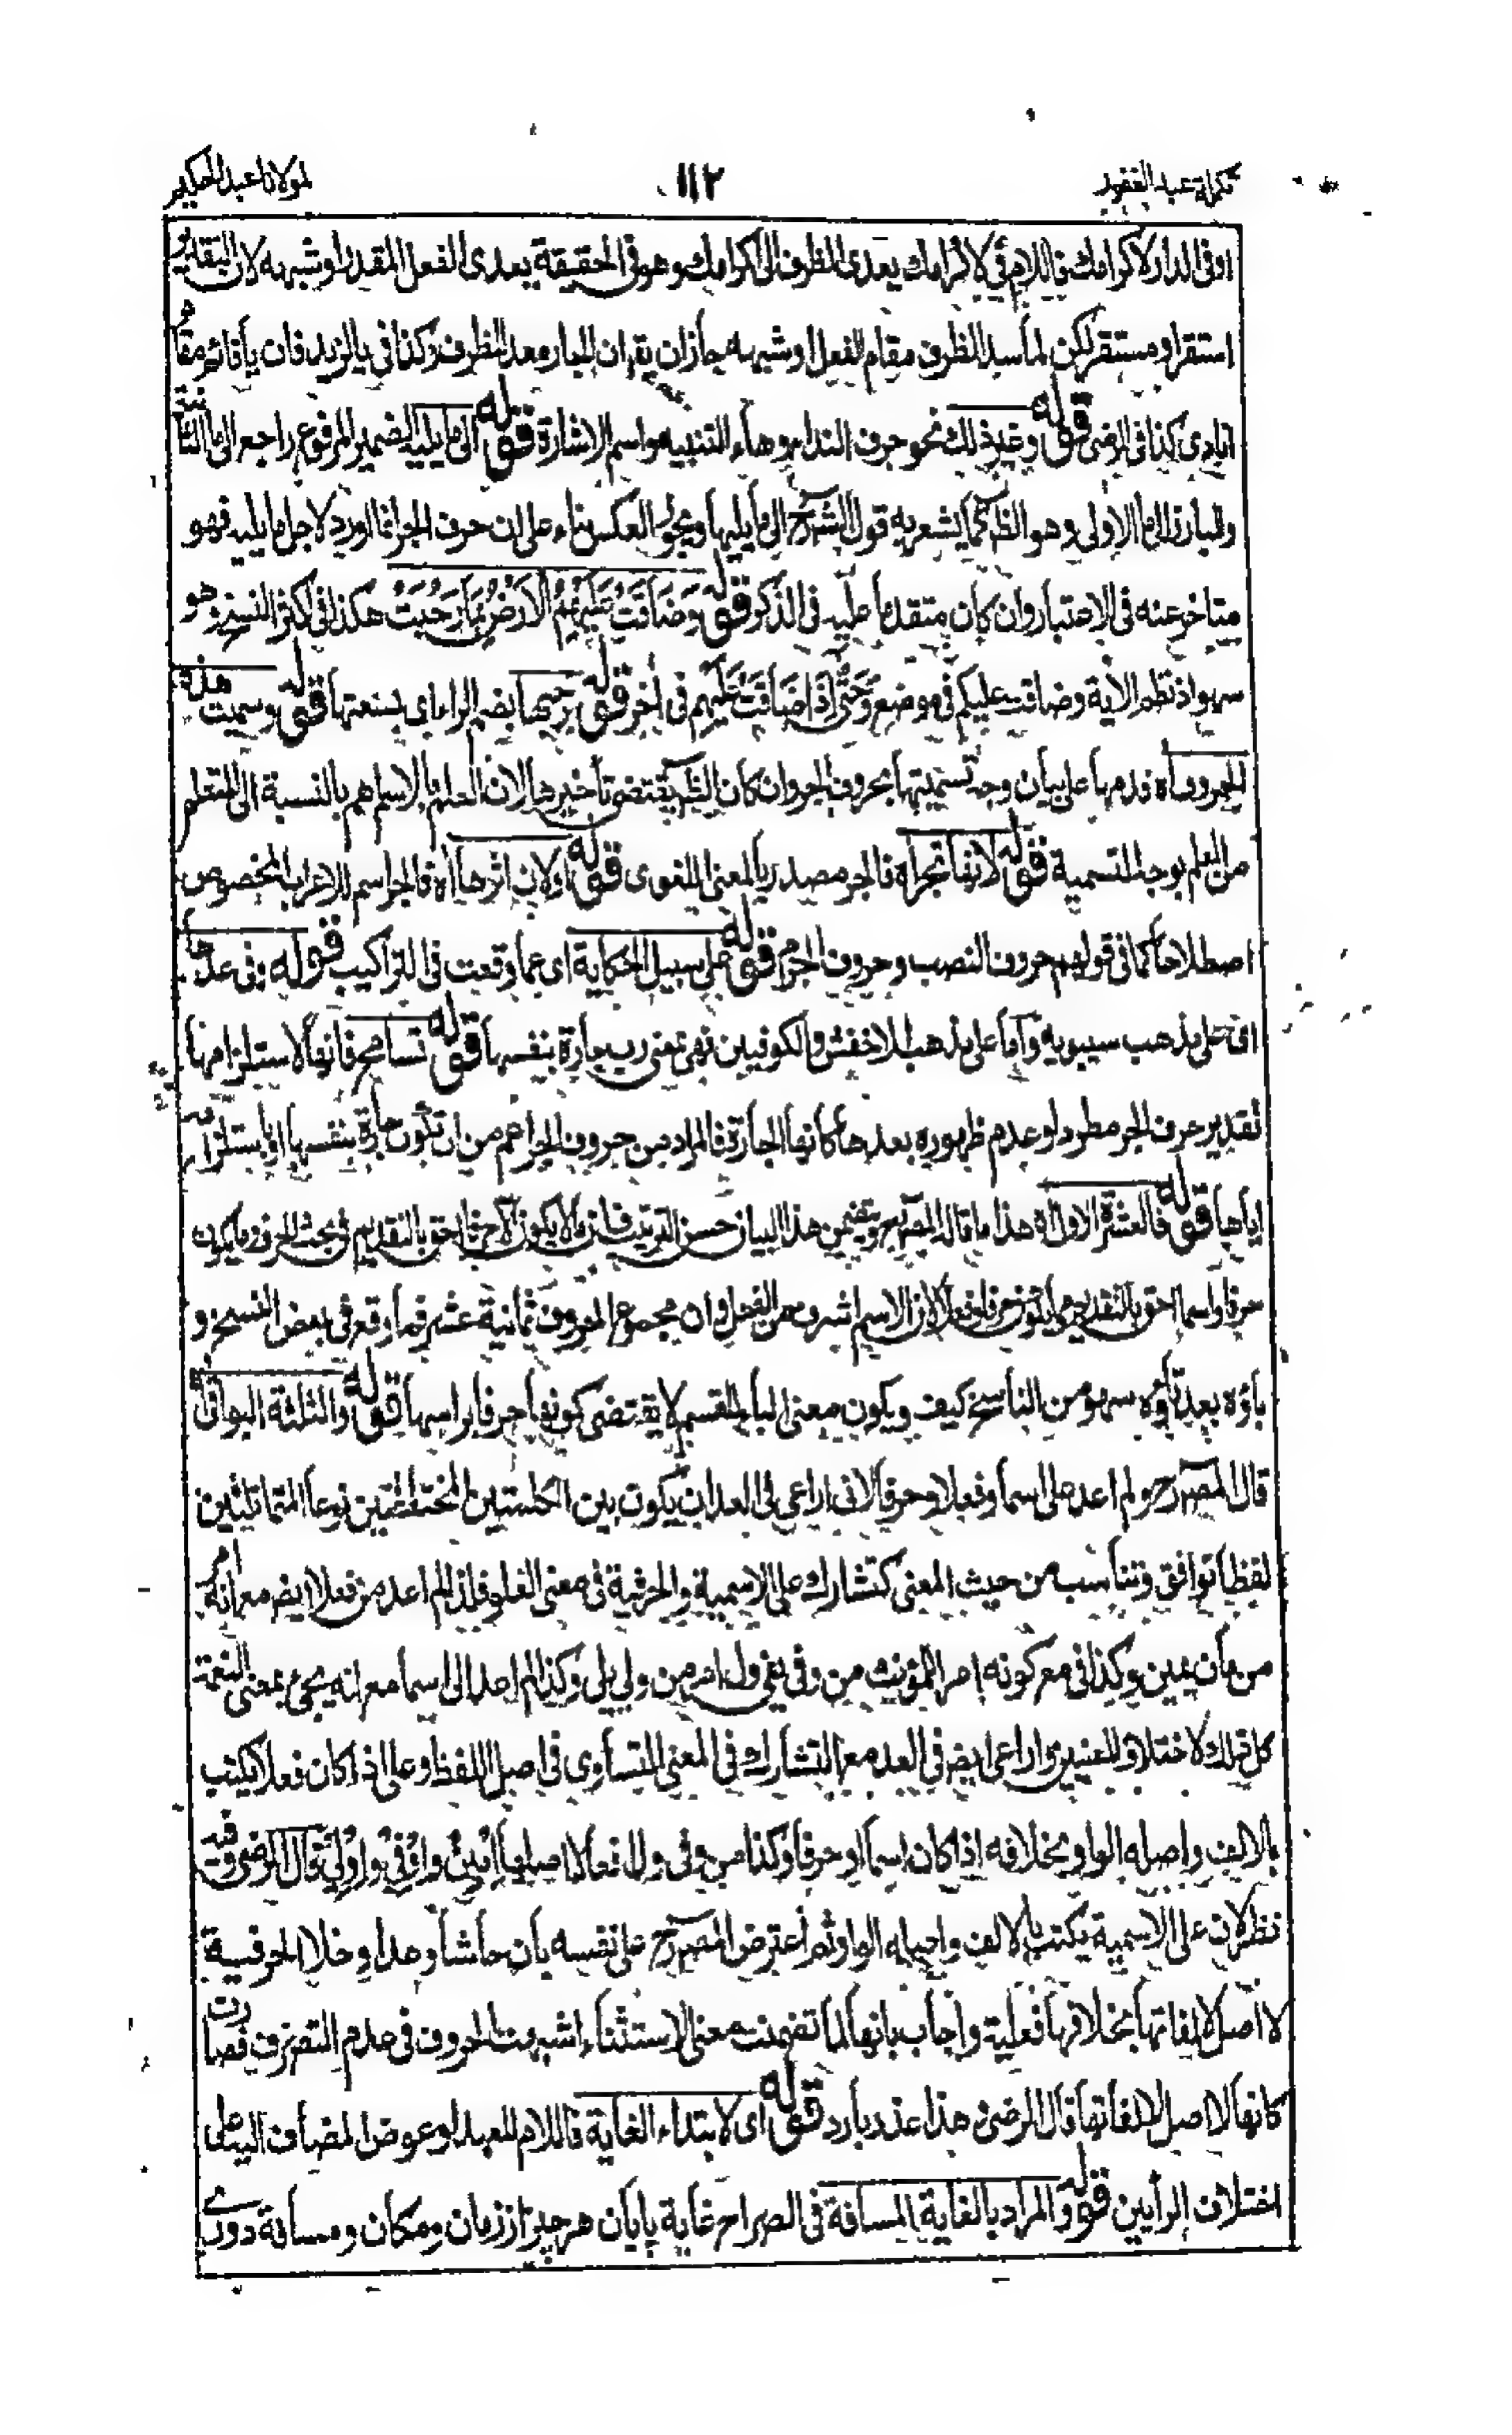 تكملة عبد الغفور
١١٢
لمولانا عبد الحكيم
او فى الدار لاكرامك فى اللام فى لاكرامك يعدى الظرف الى اكرامك وهو فى الحقيقة يعدى الفعل المقدر او شبهه لان التقدير
استقر او مستقر لكن لما سد الظرف مقام الفعل او شبهه جاز ان يقال ان الجار معد للظرف وكذا فى يا لزيد فان يا قائم مقام
انادى كذا فى الرضى قوله وغير ذلك نحو حرف النداء وهاء التنبيه واسم الاشارة قوله الى ما يليه الضمير المرفوع راجع الى ما الثانية
والبارز الى ما الاولى وهو الظ كما يشعر به قول الشرح الى ما يليها ويجوز العكس بناء على ان حرف الجر انما اورد لاجل ما يليه فهو
متاخر عنه فى الاعتبار وان كان متقدما عليه فى الذكر قوله وَضَاقَتْ عَلَيْهِمُ الْاَرْضُ بِمَا رَحُبَتْ هكذا فى اكثر النسخ وهو
سهو اذ نظم الاية وضاقت عليكم فى موضع وَحَتّٰى اِذَا ضَاقَتْ عَلَيْهِم فى اخر قوله برحبها بضم الراء اى بسعتها قوله وسميت هذه
الحروف اه قدمها على بيان وجه تسميتها بحروف الجر وان كان الظ يقتضى تأخيرها لان العلم بالاسم اهم بالنسبة الى المتعلم
من العلم بوجه التسمية قوله لانها تجر اه فالجر مصدر بالمعنى اللغوى قوله اولان اثرها اه فالجر اسم للاعراب المخصوص
اصطلاحا كما فى قولهم حروف النصب وحروف الجزم قوله على سبيل الحكاية اى عما وقعت فى التراكيب قوله وفى عدها
اى على مذهب سيبويه واما على مذهب الاخفش والكوفيين فهى بمعنى رب جارة بنفسها قوله تسامح فانها لاستلزامها
تقدير حرف الجر مطردا وعدم ظهوره بعدها كانها الجارة فالمراد من حروف الجر اعم من ان تكون جارة بنفسها او باستلزامه
اياها قوله فالعشرة الاول اه هذا ما قاله المص رح ويتضمن هذا البيان حسن الترتيب فان ما لا يكون الا حرفا احق بالتقديم فى بحث الحروف وما يكون
حرفا واسما احق بالتقديم مما يكون حرفا وفعلا لان الاسم اشرف من الفعل وان مجموع الحروف ثمانية عشر فما وقع فى بعض النسخ و
باؤه بعد تاؤه سهو من الناسخ كيف ويكون معنى الباء القسم لا يقتضى كونها حرفا براسها قوله والثلثة البواقى
قال المص رح ولم اعد على اسما وفعلا وحرفا لانى اراعى فى العد ان يكون بين الكلمتين المختلفتين نوعا المتماثلتين
لفظا توافق وتناسب من حيث المعنى كتشارك على الاسمية والحرفية فى معنى العلو فلذا لم اعد من فعلا ايضا مع انه امر
من مان يمين وكذا فى مع كونه امر المؤنث من وفى يفى ول امر من ولى يلى وكذا لم اعد الى اسما مع انه يجئ بمعنى النعمة
كل ذلك لاختلاف المعنيين واراعى ايضا فى العد مع التشارك فى المعنى التساوى فى اصل اللفظ وعلى اذا كان فعلا يكتب
بالالف واصله الواو بخلافه اذا كان اسما او حرفا وكذا من وفى ول افعالا اصلها اُمْيُنْ واوْفِىْ واوْلِىْ قال الرضى وفيه
نظر لان على الاسمية يكتب بالالف واصله الواو ثم اعترض المص رح على نفسه بان حاشا وعدا وخلا الحرفية
لا اصل لالفاتها بخلافها فعلية واجاب بانها لما تضمنت معنى الاستثناء اشبهت الحروف فى عدم التصرف فصارت
كانها لا اصل لالفاتها قال الرضى وهذا عذر بارد قوله اى لابتداء الغاية فاللام للعهد او عوض المضاف اليه على
اختلاف الرأيين قوله والمراد بالغاية المسافة فى الصراح غاية پايان هر چيز از زمان ومكان ومسافة دورى